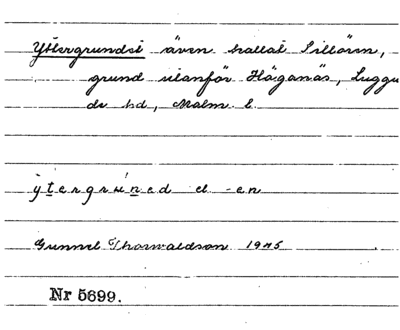 Yttergrundet även kallat Sillören,
grund utanför Höganäs, Luggu
de hd, Malm. l.
ýtergrùned el -en
Gunnel Thorwaldson 1945
Nr 5699.